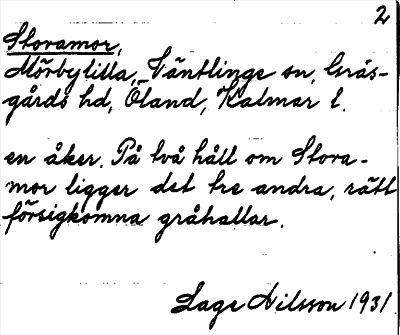 2
Storamor,
Mörbylilla, Ventlinge sn, Gräs-
gårds hd, Öland, Kalmar l.
en åker. På två håll om Stora-
mor ligger det tre andra, rätt
försigkomna gråhallar.
Lage Nilsson 1931